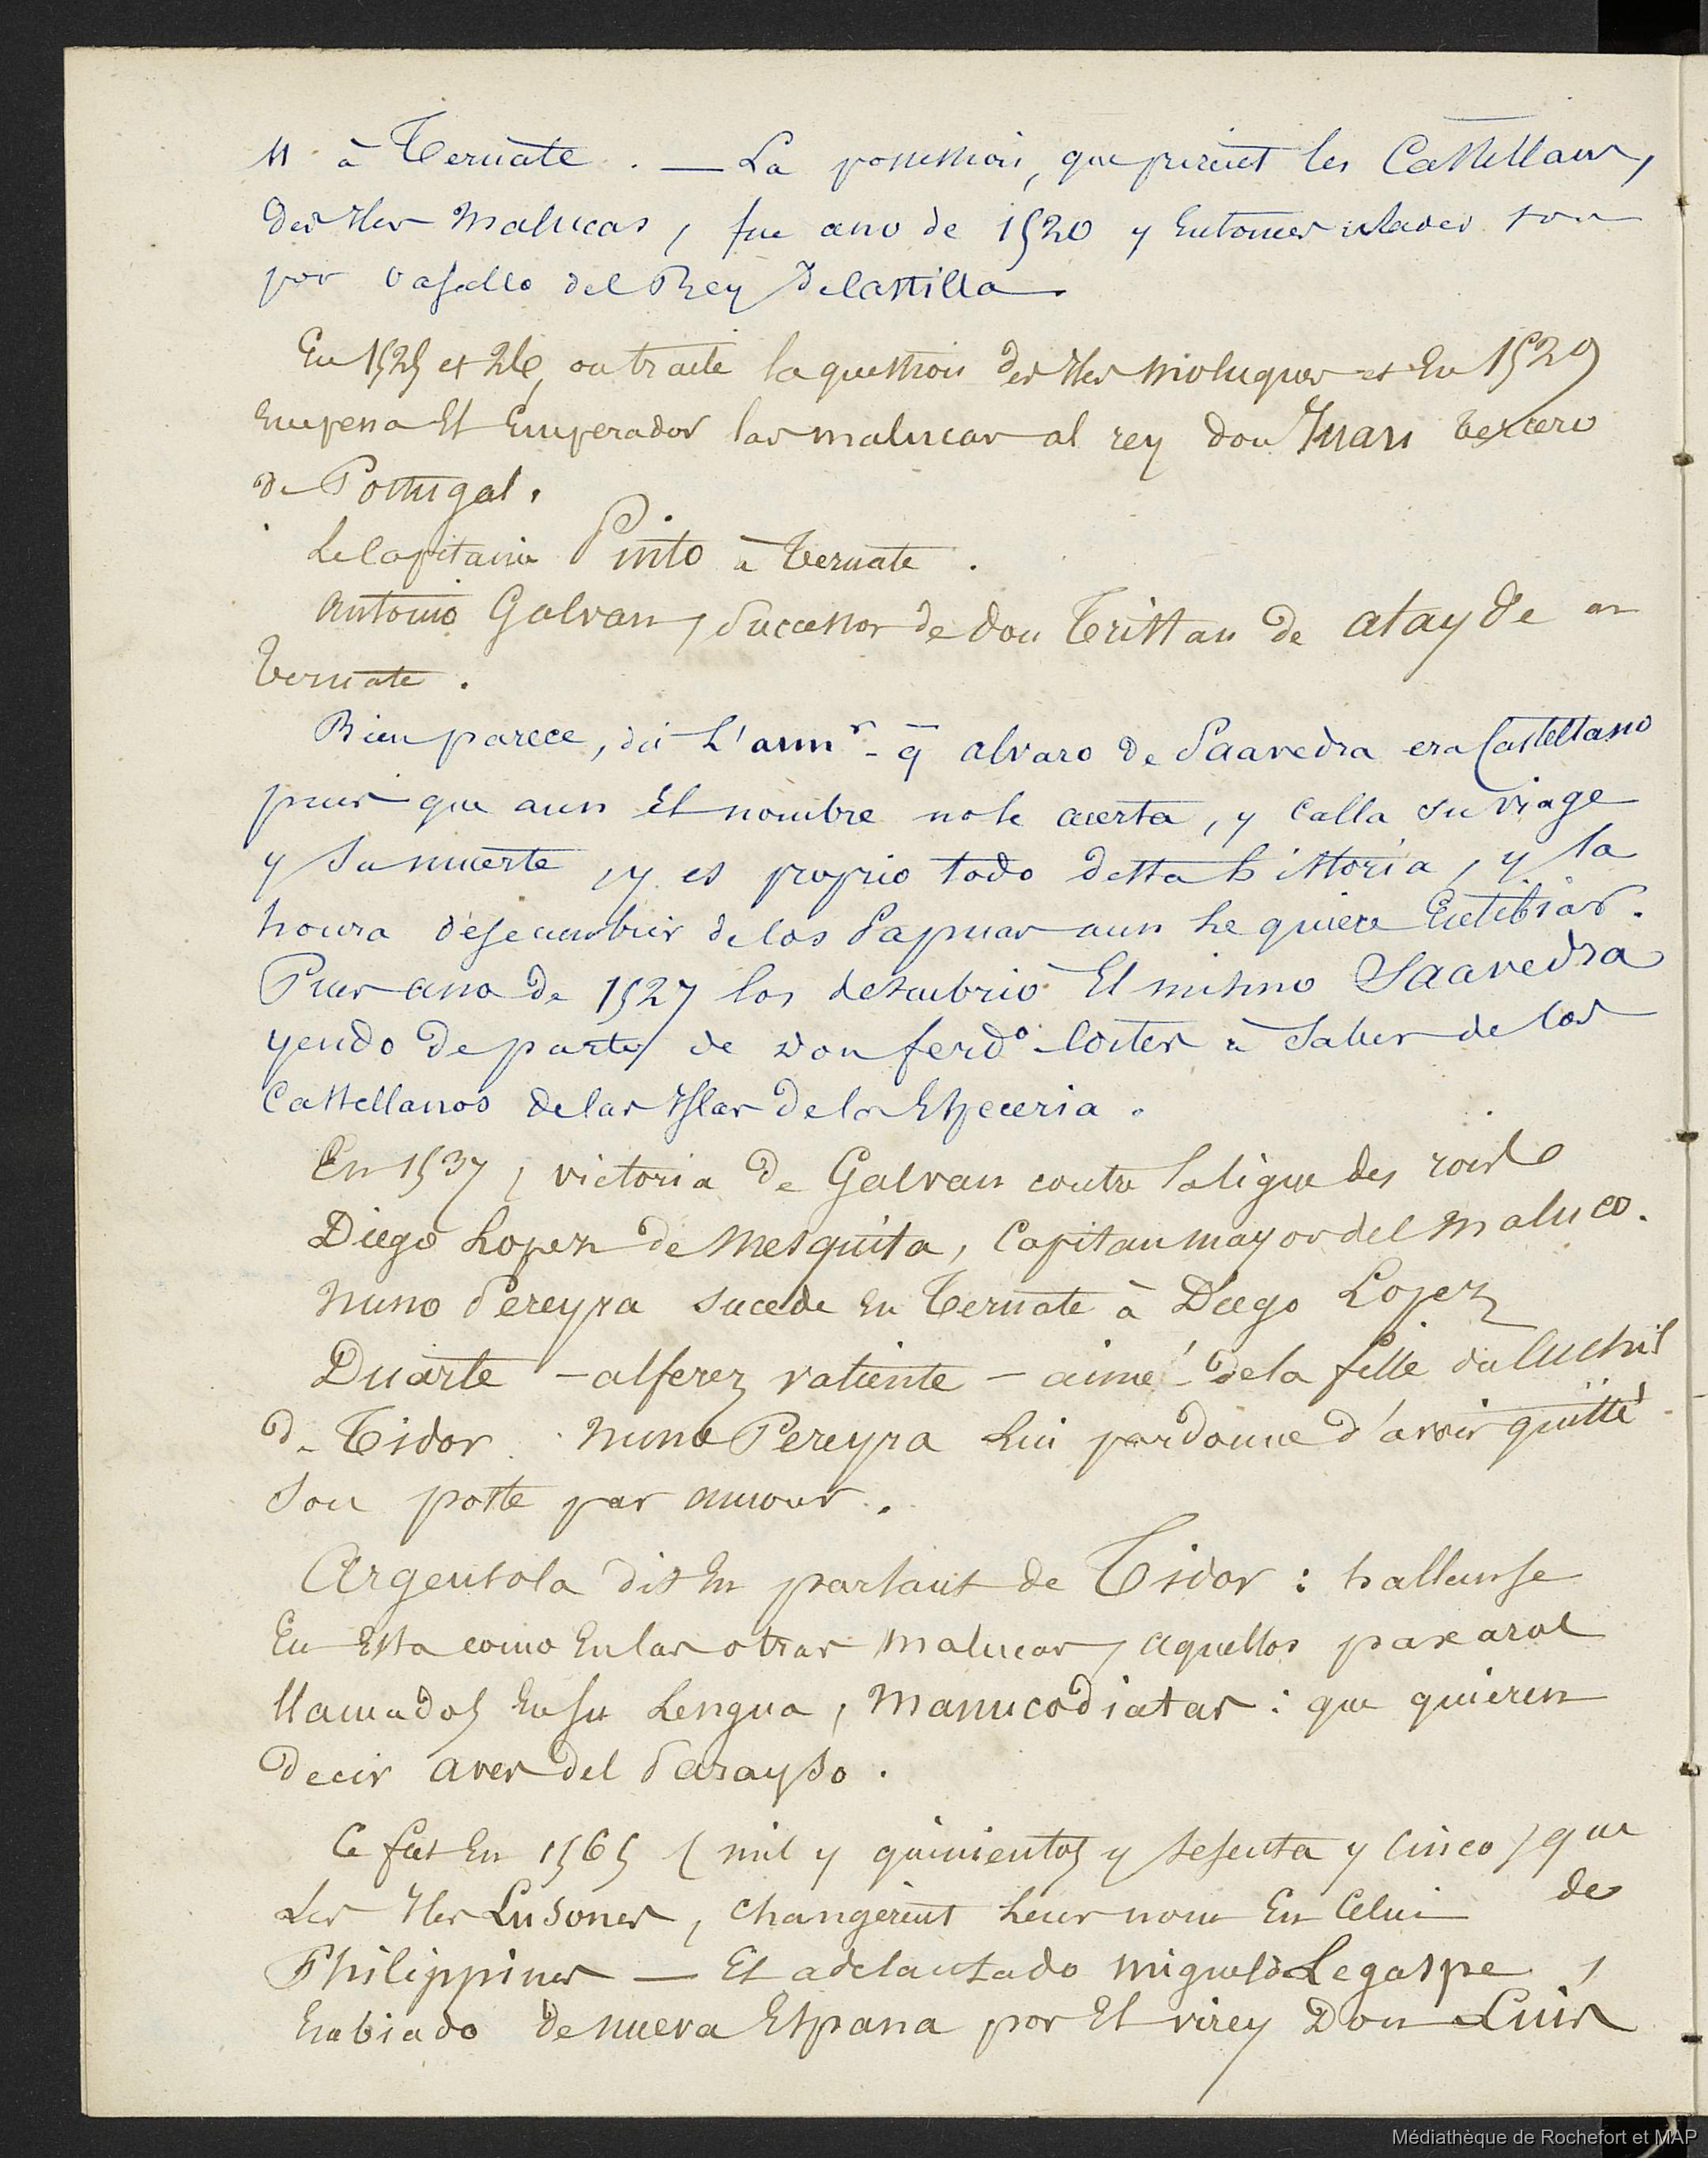 à Ternate . — La possession, que prirent les Castellans,
des Iles Malucas, fue ano de 1520 y Entonces
por vasallo del Rey De Castilla.
En 1525 et 26, on traite la question des Iles Moluques et En 1529
Empena El Emperador las malucas al rey don Juan tercero
de Portugal.
Le Capitaine Pinto à Ternate .
Antonio Galvan, Successor de don Tristan de atayde en
Ternate .
Bien parece, dit L'annr - q̄ alvaro de Saavedra era Castellano
pues que aun El nombre no le acerta, y calla su viage
y su muerte, y es proprio todo desta historia, y la
honra de descubrir de los Papuas aun le quiere Entibiar.
Pues ano de 1527 los descubrió El mismo Saavedra
yendo de parte de Don ferdo Cortes à Saber de los
Castellanos de las Yslas de la Especeria .
En 1537, victoria de Galvan contre la ligue des rois
Diego Lopez de Mesquita, Capitan mayor del Maluco.
Nuno Pereyra sucede En Ternate à Diego Lopez
Duarte - alferez valiente - aimé de la fille du Cuchil
de Tidor . Nuno Pereyra Lui pardonne d'avoir quitté
Son poste par amour .
Argensola dit En parlant de Tidor : hallanse
En Esta como En las otras Malucas, aquellos paxaros
llamados En su Lengua, Manucodiatas : que quieren
decir aves del Parayso .
Ce fut En 1565 (mil y quinientos y sesenta y Cinco) que
Les Iles Lusones, changèrent Leur nom En Celui de
Philippines — El adelantado Miguel de Legaspe,
Enbiado de nueva Espana por El virey Don Luis
Médiathèque de Rochefort et MAP